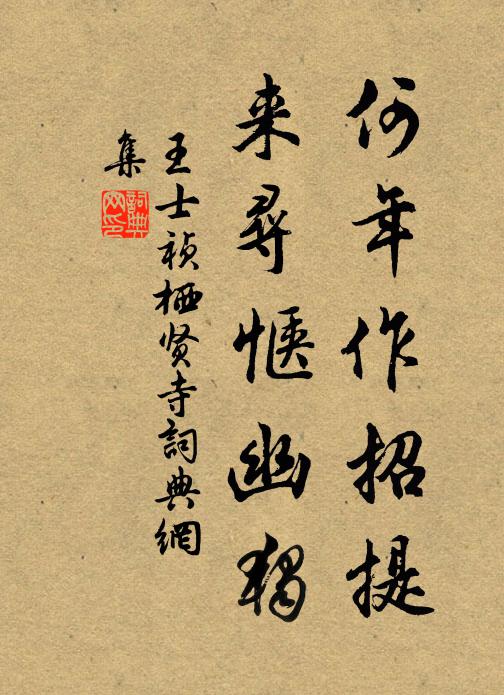 何年作招提
来寻惬幽独
王士祯栖贤寺词典网
集
词典网印